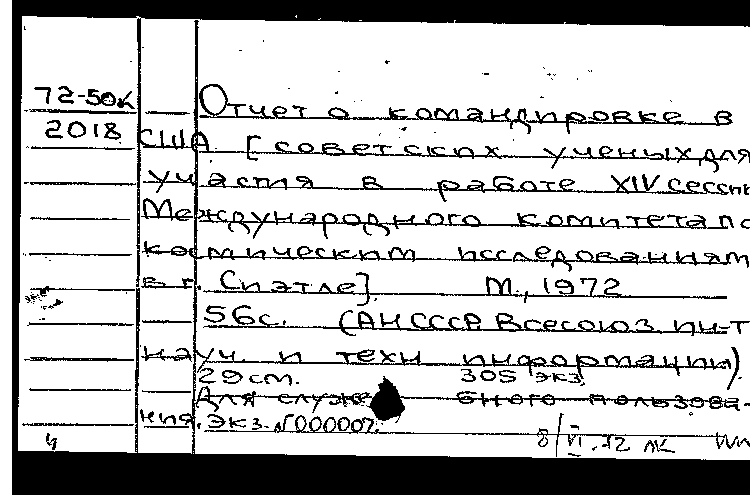 72-50к
2018
Отчет о командировке в
США [советских ученых для
участия в работе XIV сессии
Международного комитета по
космическим исследованиям
в г. Сиэтле] М., 1972
56с. (АН СССР Всесоюз ин-т
науч. и техн информации)
29 см. 305 экз.
Для служебного пользова-
ния. Экз. №000007.
4
8/VI.72